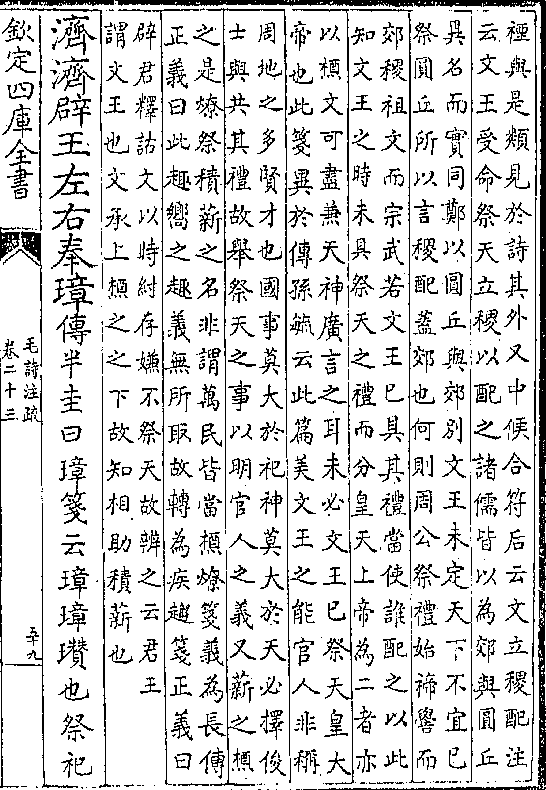 禋與是類見於詩其外又中候合符后云文立稷配注
云文王受命祭天立稷以配之諸儒皆以為郊與圓丘
異名而實同鄭以圓丘與郊別文王未定天下不宜已
祭圓丘所以言稷配蓋郊也何則周公祭禮始禘嚳而
郊稷祖文而宗武若文王已具其禮當使誰配之以此
知文王之時未具祭天之禮而分皇天上帝為二者亦
以槱文可盡兼天神廣言之耳未必文王已祭天皇大
帝也此箋異於傳孫毓云此篇美文王之能官人非稱
周地之多賢才也國事莫大於祀神莫大於天必擇俊
士與共其禮故舉祭天之事以明官人之義又薪之槱
之是燎祭積薪之名非謂萬民皆當槱燎箋義為長傳
正義曰此趣嚮之趣義無所取故轉為疾趨箋正義曰
辟君釋詁文以時紂存嫌不祭天故辨之云君王
謂文王也文承上槱之之下故知相助積薪也
濟濟辟王左右奉璋傳半圭曰璋箋云璋璋瓚也祭祀
欽定四庫全書
毛詩注疏
卷二十三
五十九